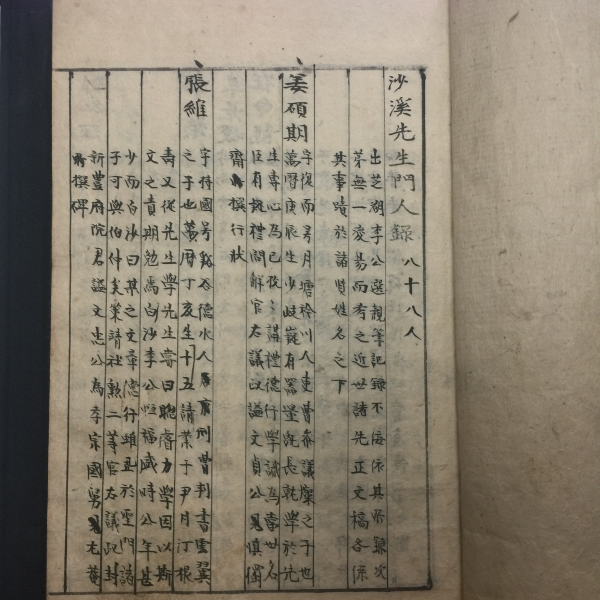 沙溪先生門人錄 八十八人
出芝湖李公選親筆記錄不
依其所錄次
第無一變易而考之近世諸先正文稿各係
其事蹟於諸賢姓名之下
姜碩期 字復而号月塘衿川人吏曹參議燦之子也
萬曆庚辰生少岐嶷有器量旣長就學於先
生專心爲己
講禮德行學識爲當世名
臣有疑禮問解官右議政謚文貞公見愼獨
齋所撰行狀
張維 字持國号谿谷德水人
刑曹判書雲翼
之子也萬曆丁亥生十五請業于尹月汀根
壽又從先生學先生嘗曰聰睿力學因以斯
文之責期勉焉白沙李公恒福盛時公年甚
少而白沙曰某之文章德行雖
於聖門諸
子可與伯仲矣策靖社勳二等官右議政封
新豊府院君謚文忠公爲孝宗國舅見尤菴
所撰碑